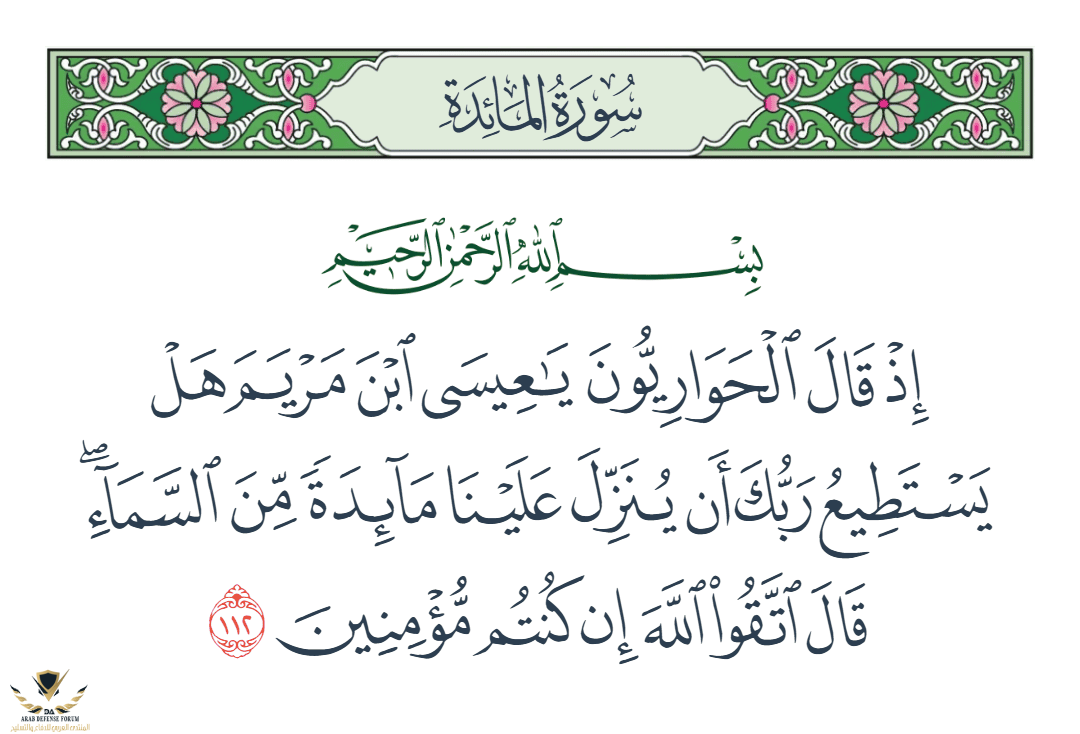 سُورَةُ المَائِدَةِ
بِسْمِ ٱللَّهِ ٱلرَّحْمَٰنِ ٱلرَّحِيمِ
إِذْ قَالَ ٱلْحَوَارِيُّونَ يَـٰعِيسَى ٱبْنَ مَرْيَمَ هَلْ
يَسْتَطِيعُ رَبُّكَ أَن يُنَزِّلَ عَلَيْنَا مَآئِدَةً مِّنَ ٱلسَّمَآءِۖ
قَالَ ٱتَّقُوا۟ ٱللَّهَ إِن كُنتُم مُّؤْمِنِينَ ١١٢
DA
ARAB DEFENSE FORUM
المنتدى العربي للدفاع والتسليح